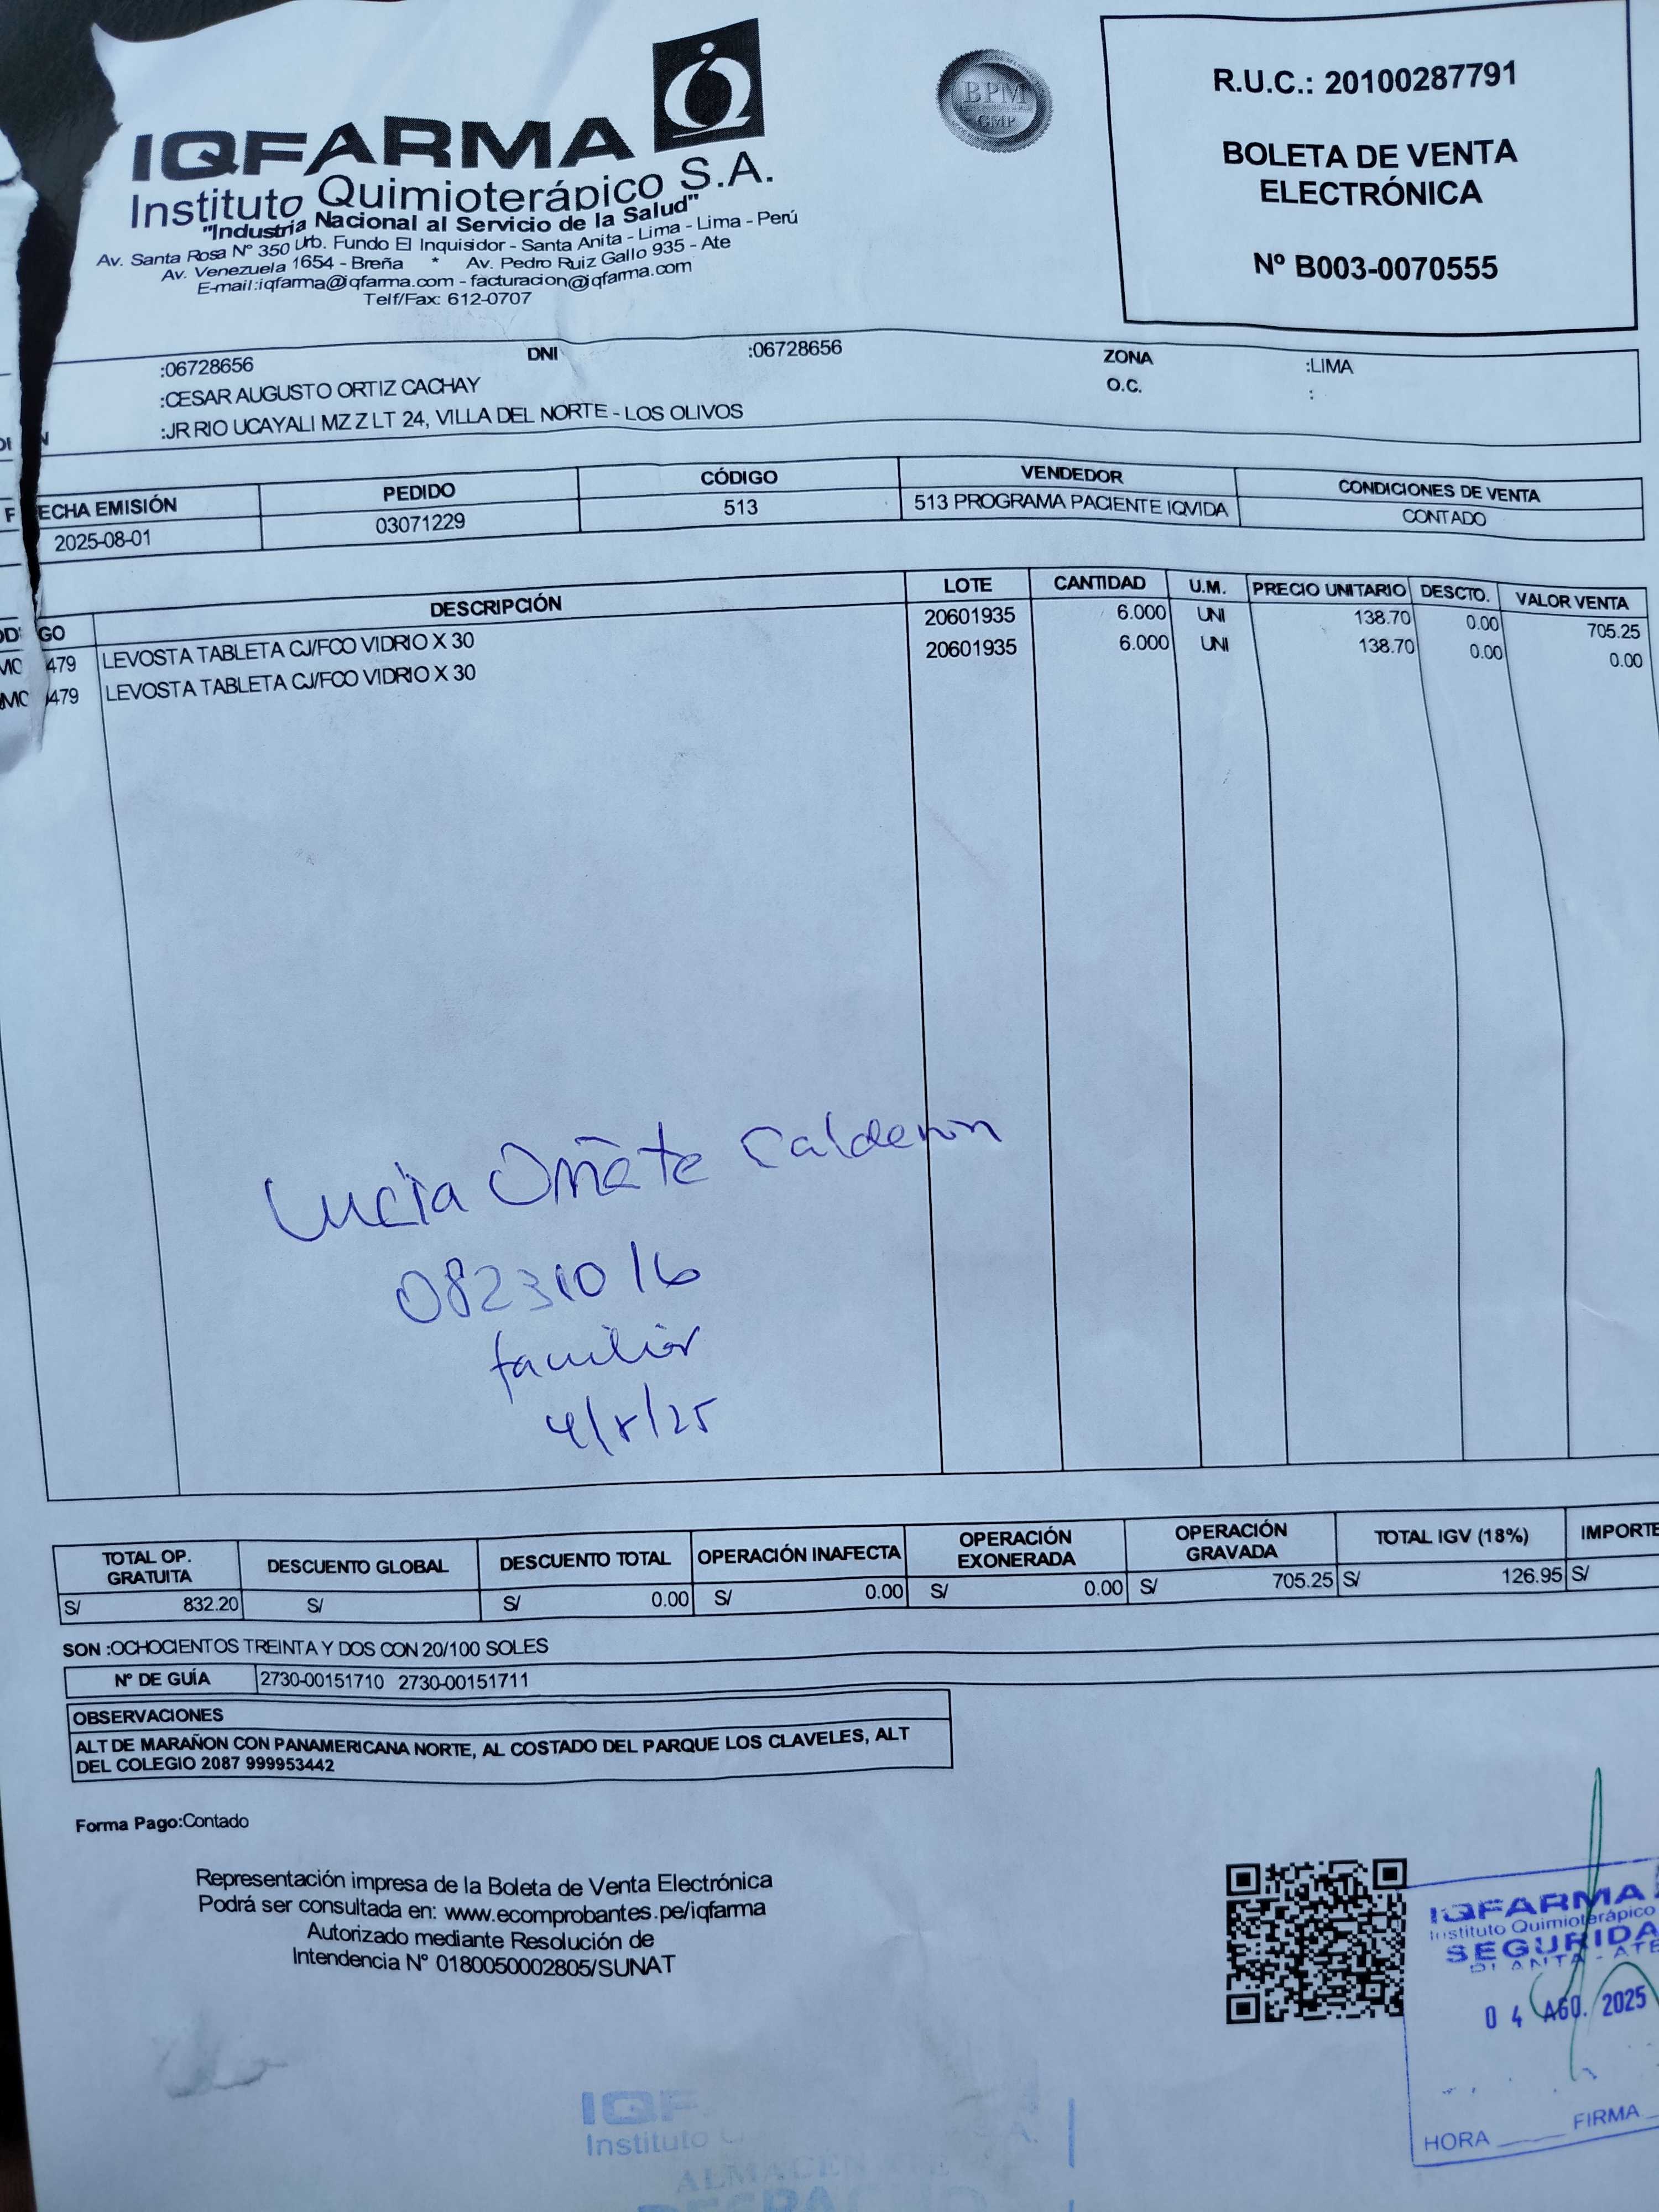 IQFARMA
Instituto Quimioterápico S.A.
"Industria Nacional al Servicio de la Salud"
Av. Santa Rosa Nº 350 Urb. Fundo El Inquisidor - Santa Anita - Lima - Lima - Perú
Av. Venezuela 1654 - Breña * Av. Pedro Ruiz Gallo 935 - Ate
E-mail:iqfarma@iqfarma.com - facturacion@iqfarma.com
Telf/Fax: 612-0707
BPM
GMP
R.U.C.: 20100287791
BOLETA DE VENTA
ELECTRÓNICA
Nº B003-0070555
:06728656 DNI :06728656 ZONA :LIMA
:CESAR AUGUSTO ORTIZ CACHAY O.C. :
:JR RIO UCAYALI MZ Z LT 24, VILLA DEL NORTE - LOS OLIVOS
FECHA EMISIÓN PEDIDO CÓDIGO VENDEDOR CONDICIONES DE VENTA
2025-08-01 03071229 513 513 PROGRAMA PACIENTE IQVIDA CONTADO
GO DESCRIPCIÓN LOTE CANTIDAD U.M. PRECIO UNITARIO DESCTO. VALOR VENTA
479 LEVOSTA TABLETA CJ/FCO VIDRIO X 30 20601935 6.000 UNI 138.70 0.00 705.25
479 LEVOSTA TABLETA CJ/FCO VIDRIO X 30 20601935 6.000 UNI 138.70 0.00 0.00
Lucia Oñate Calderon
08231016
familiar
4/8/25
TOTAL OP. GRATUITA DESCUENTO GLOBAL DESCUENTO TOTAL OPERACIÓN INAFECTA OPERACIÓN EXONERADA OPERACIÓN GRAVADA TOTAL IGV (18%) IMPORTE
S/ 832.20 S/ S/ 0.00 S/ 0.00 S/ 0.00 S/ 705.25 S/ 126.95 S/
SON :OCHOCIENTOS TREINTA Y DOS CON 20/100 SOLES
Nº DE GUÍA 2730-00151710 2730-00151711
OBSERVACIONES
ALT DE MARAÑON CON PANAMERICANA NORTE, AL COSTADO DEL PARQUE LOS CLAVELES, ALT
DEL COLEGIO 2087 999953442
Forma Pago:Contado
Representación impresa de la Boleta de Venta Electrónica
Podrá ser consultada en: www.ecomprobantes.pe/iqfarma
Autorizado mediante Resolución de
Intendencia Nº 0180050002805/SUNAT
IQFARMA
Instituto Quimioterápico
SEGURIDA
PLANTA - ATE
04 AGO. 2025
HORA FIRMA
IQF
Instituto
ALMACEN
DESPACHO